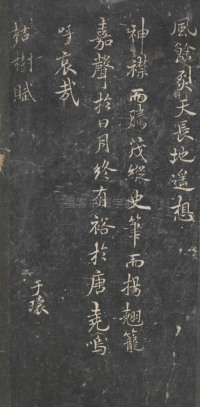 風餘烈天長地遥想
神襟而騰茂縱史筆而揚翹籠
嘉聲於日月終有裕於唐堯嗚
呼哀哉
枯樹賦
于環